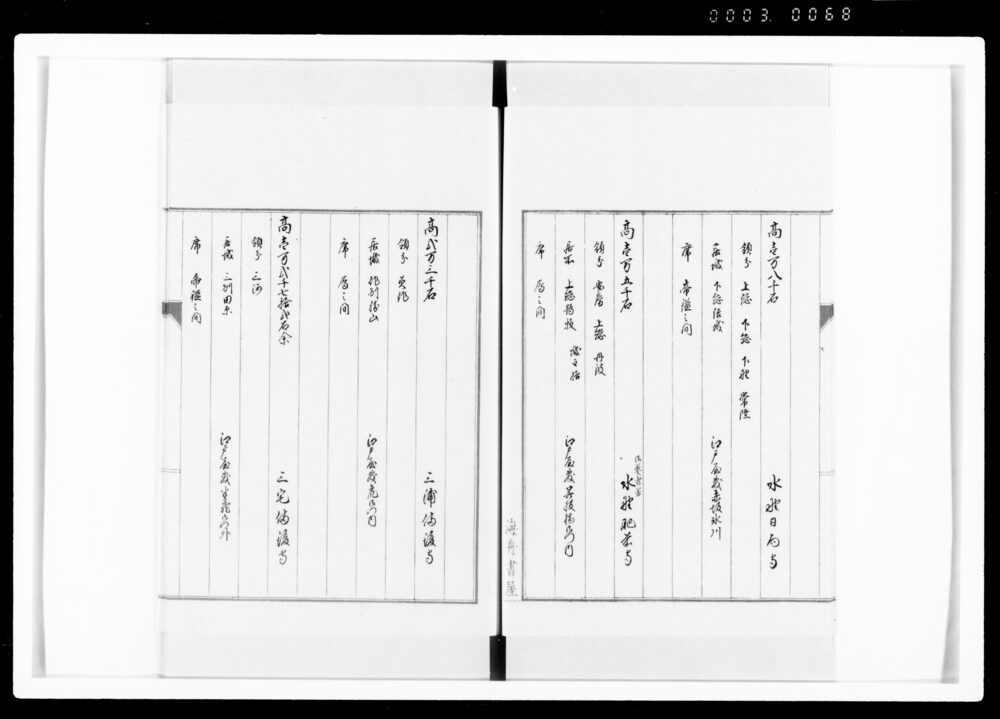 0003. 0068
高壱万八千石
水野日向守
領分 上総 下総 下野 常陸
居城 下総結城
江戸屋敷赤坂氷川
席 帝鑑之間
高壱万五千石
水野肥前守
領分 安房 上総 丹波
居所 上総鶴牧 城主格
江戸屋敷呉服橋御門内
席 雁之間
海舟書屋
高弐万三千石
三浦備後守
領分 美作
居城 作州勝山
江戸屋敷虎御門内
席 雁之間
高壱万弐千七拾弐石余
三宅備後守
領分 三河
居城 三州田原
江戸屋敷半蔵御門外
席 帝鑑之間